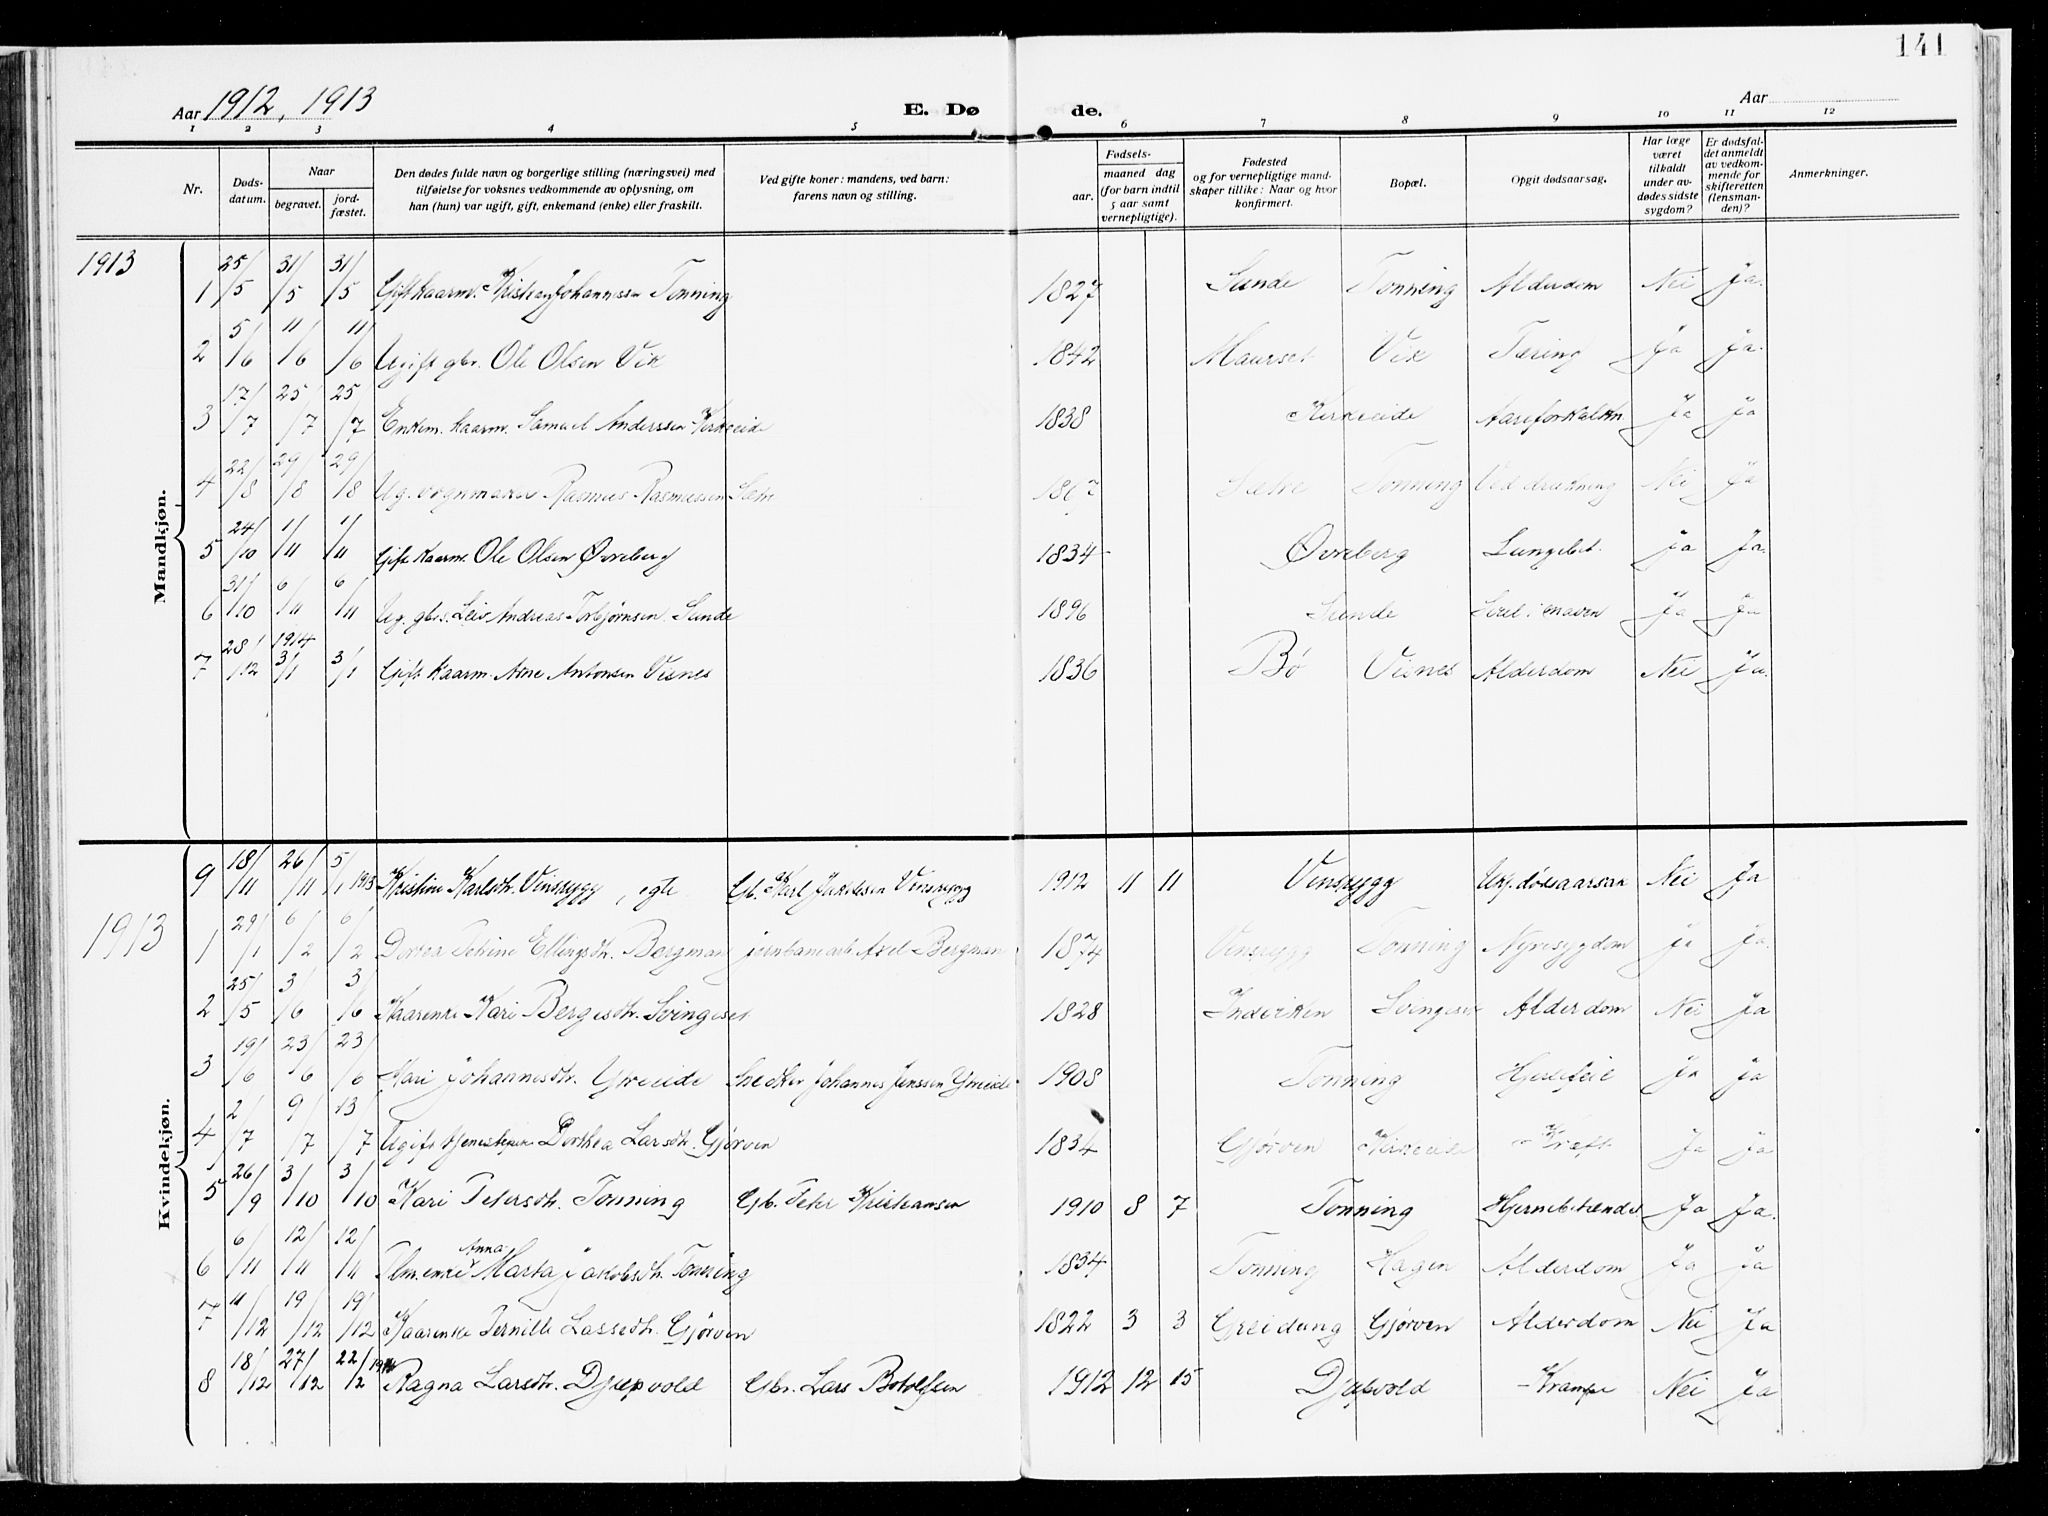 141
Aar 1912, 1913 E. Dø de. Aar
1 2 3 4 5 6 7 8 9 10 11 12
Nr. Døds-datum. Naar begravet. jord-fæstet. Den dødes fulde navn og borgerlige stilling (næringsvei) med tilføielse for voksnes vedkommende av oplysning, om han (hun) var ugift, gift, enkemand (enke) eller fraskilt. Ved gifte koner: mandens, ved barn: farens navn og stilling. Fødsels- aar. maaned dag (for barn indtil 5 aar samt vernepligtige). Fødested og for vernepligtige mandskaper tillike: Naar og hvor konfirmert. Bopæl. Opgit dødsaarsag. Har læge været tilkaldt under avdødes sidste sygdom? Er dødsfaldet anmeldt av vedkommende for skifteretten (lensmanden)? Anmerkninger.
Mandkjøn.
1913
1 25/5 31/5 31/5 Gift kaarm. Kristen Johannessen Tonning 1827 Sunde Tonning Alderdom Nei Ja.
2 5/6 11/6 11/6 Ugift gbr. Ole Olsen Vik 1842 Maurset Vik Tæring Ja Ja.
3 17/7 25/7 25/7 Enkem. kaarm. Samuel Anderssen Kirkeeide 1838 Kirkeeide Aareforkalkn Ja Ja
4 22/8 29/8 29/8 Ug. vognmand Rasmus Rasmussen Tonning Ved drukning Nei Ja
5 24/10 1/11 1/11 Gift Kaarm. Ole Olsen Øvreberg 1834 Øvreberg Lungebet. Ja Ja.
6 31/10 6/11 6/11 Ug. gbrs. Leiv Andreas Torbjørnsen Sunde 1896 Sunde i maven Ja Ja
7 28/12 1914 3/1 3/1 Gift Kaarm. Arne Antonsen Visnes 1836 Bø Visnes Alderdom Nei Ja.
Kvindekjøn.
9 18/11 26/11 5/1 1913 Kristine Karlsdtr. Vinsrygg, egte Gb. Karl Jakobsen Vinsrygg 1912 11 11 Vinsrygg Ukj. dødsaarsak Nei Ja
1913
1 29/1 6/2 6/2 Dortea Petrine Ellingsdtr. Bergman jernbanearb. Axel Bergman 1874 Vinsrygg Tonning Nyresygdom Ja Ja.
2 25/5 3/6 3/6 Kaarenke Kari Bergesdtr. Svingeset 1828 Indviken Svingeset Alderdom Nei Ja
3 19/6 23/6 23/6 Kari Johannesdtr. Yreeide Snedker Johannes Jenssen Yreeide 1908 Tonning Hjertefeil Ja Ja
4 2/7 9/7 13/7 Ugift tjenestepike Dorthea Larsdtr. Gjørven 1834 Gjørven Kirkeeide Kræft Ja Ja
5 26/9 3/10 3/10 Kari Petersdtr. Tonning Gb. Peter Kristiansen 1910 8 7 Tonning Hjernebetændelse Ja Ja.
6 6/11 12/11 12/11 Flm.enke Anna Marta Jakobsdtr. Tonning 1834 Tonning Hagen Alderdom Ja Ja
7 11/12 19/12 19/12 Kaarenke Pernille Lassedtr. Gjørven 1822 3 3 Greidung Gjørven Alderdom Nei Ja
8 18/12 27/12 22/2 1914 Ragna Larsdtr. Djupvold Gbr. Lars Botolfsen 1912 12 15 Djupvold Krampe Nei Ja